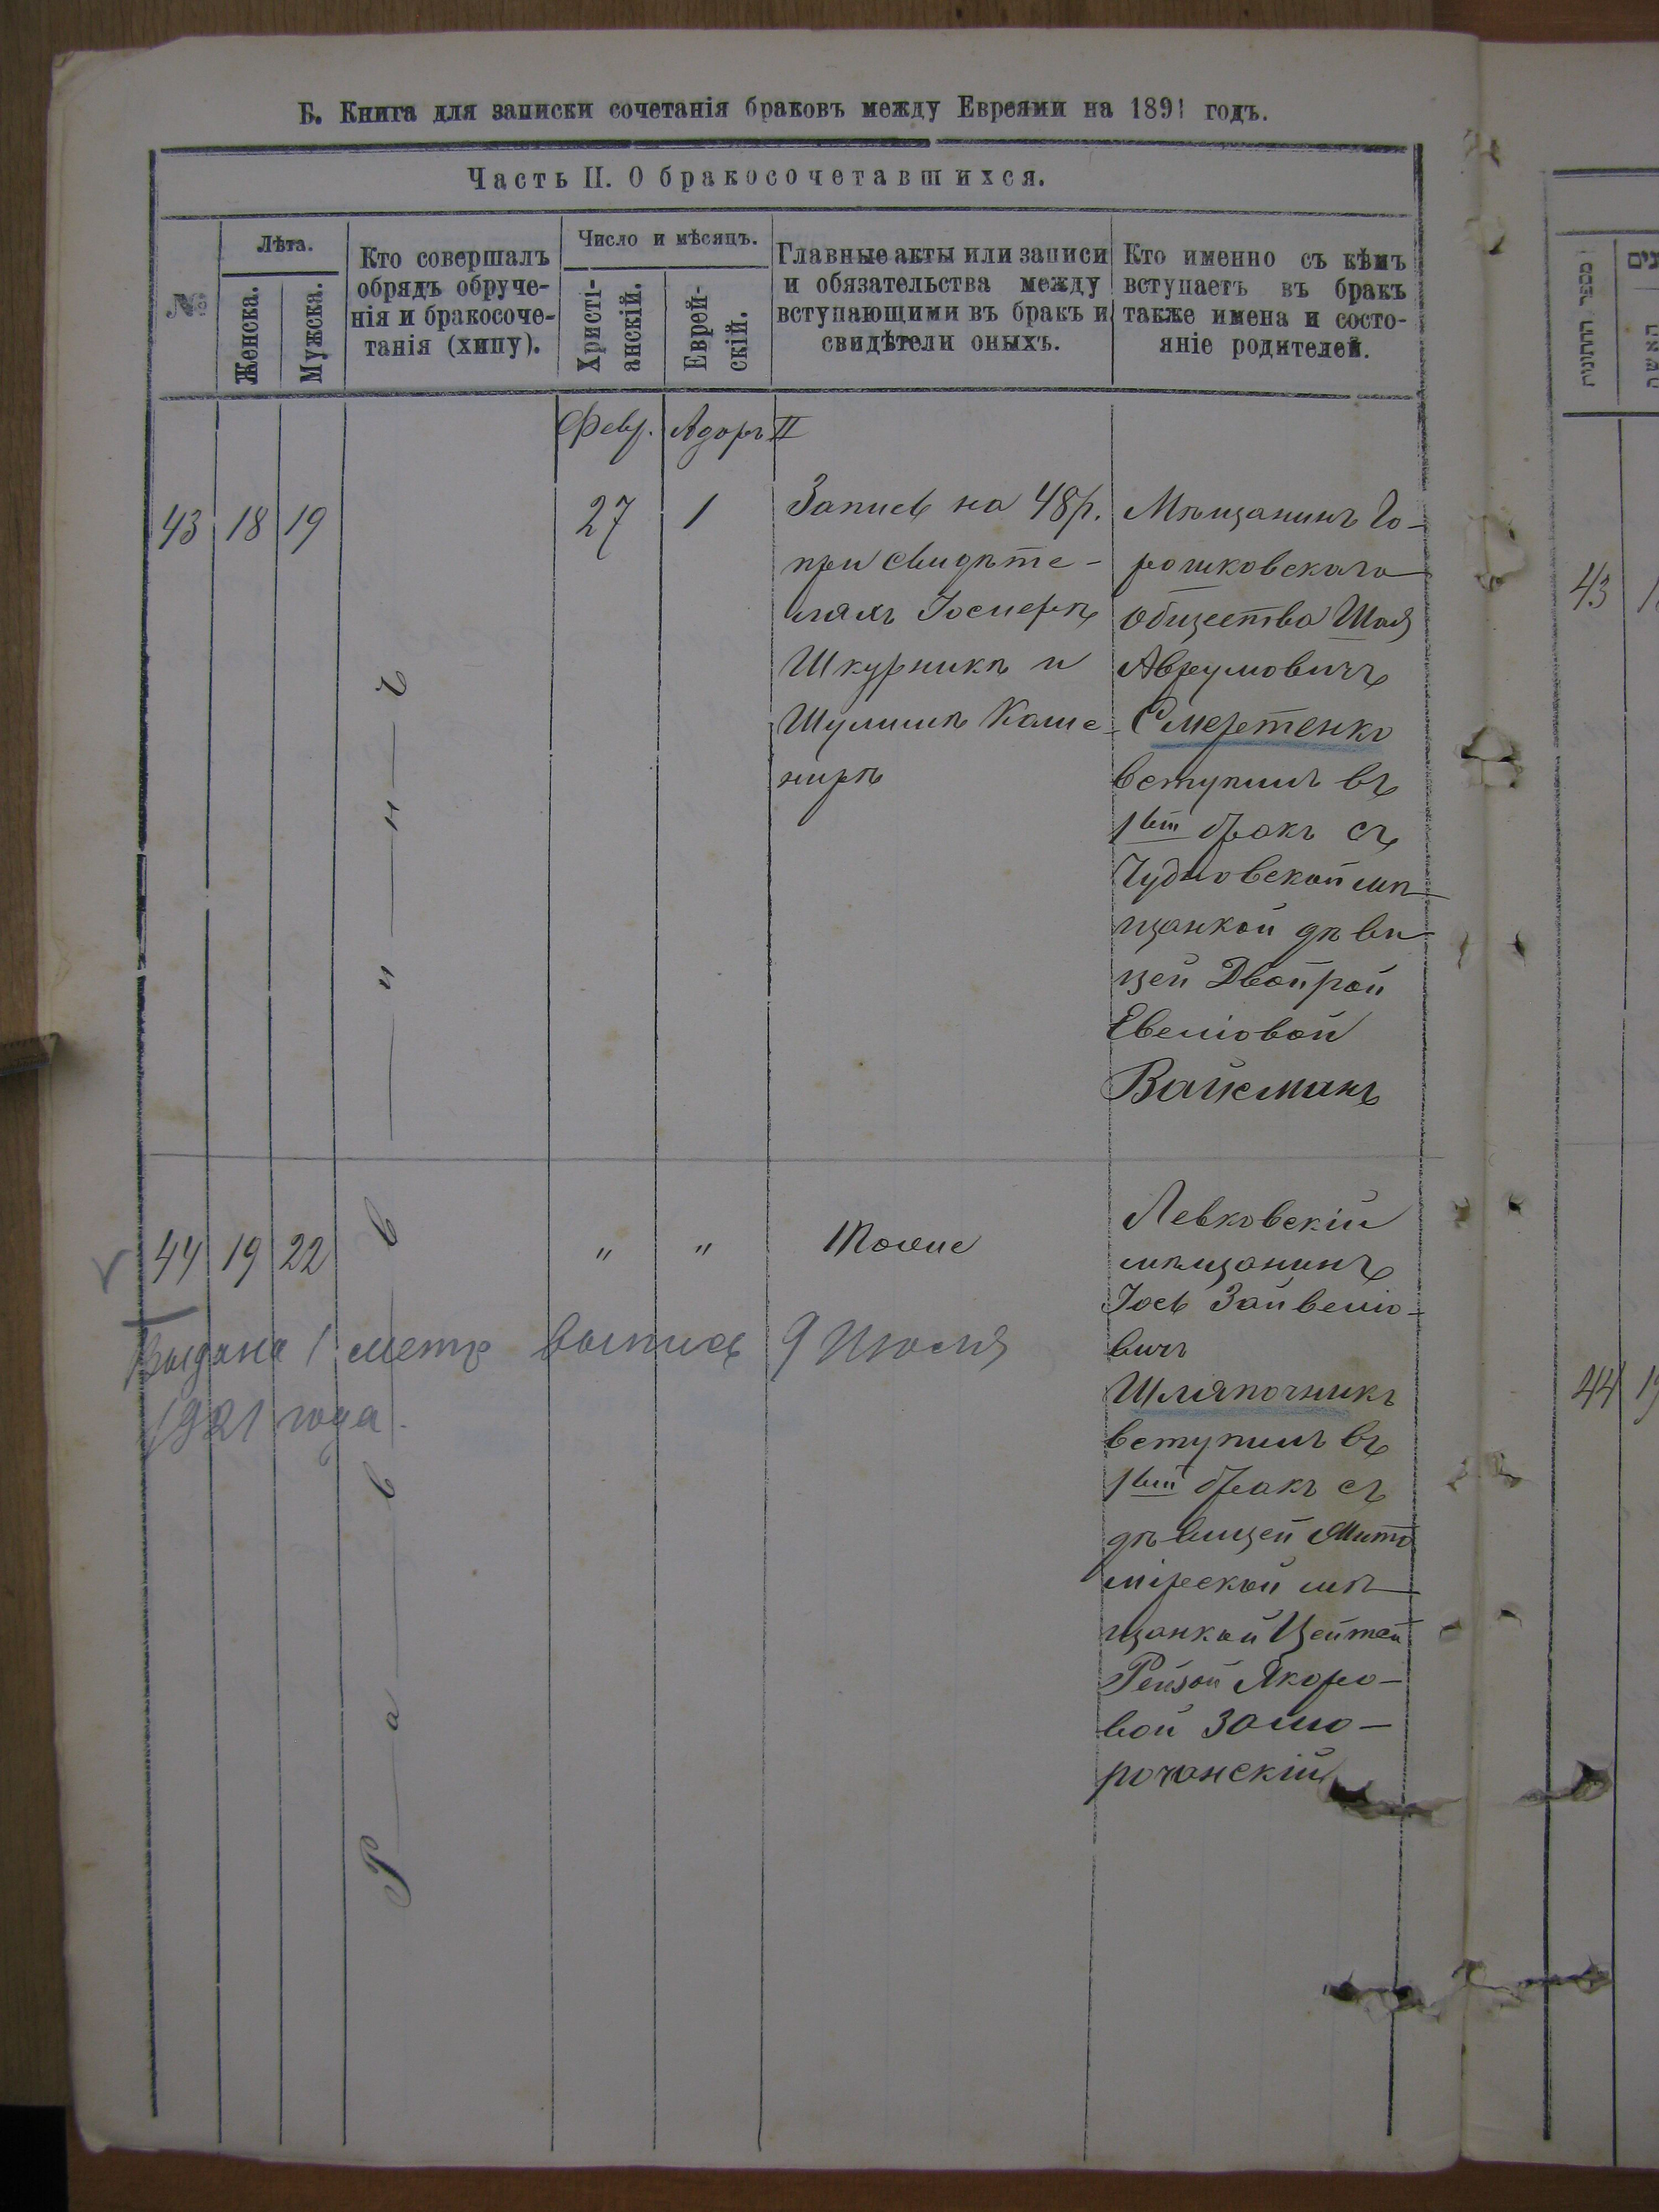 Б. Книга для записки сочетанія браковъ между Евреями на 1891 годъ.
Часть II. О бракосочетавшихся.
№
Лѣта.
Женска.
Мужска.
Кто совершалъ
обрядъ обруче-
нія и бракосоче-
танія (хипу).
Число и мѣсяцъ.
Христі-
анскій.
Еврей-
скій.
Главные акты или записи
и обязательства между
вступающими въ бракъ и
свидѣтели оныхъ.
Кто именно съ кѣмъ
вступаетъ въ бракъ
также имена и состо-
яніе родителей.
Февр. Адоръ II
43 18 19
27 1
Запись на 48 р.
при свидѣте-
ляхъ Іосперѣ
Шкурникъ и
Шулимъ Каше-
нирѣ
Мѣщанинъ Го-
рошковскаго
общества Шая
Аврумовичъ
Смеретенко
вступилъ въ
1вый бракъ съ
Чудновской мѣ-
щанкой дѣви-
цей Двойрой
Евеліовой
Вайсманъ
44 19 22
" "
Тоже
Левковскій
мѣщанинъ
Іось Зайвеліо-
вичъ
Шляпочникъ
вступилъ въ
1вый бракъ съ
дѣвицей Жито
мірской мѣ-
щанкой Цейтей
Рейзой
вой Замо-
рочанскій
Выдана 1 метр выпись 9 Июля
1921 года.
Раввинъ
43
44 19